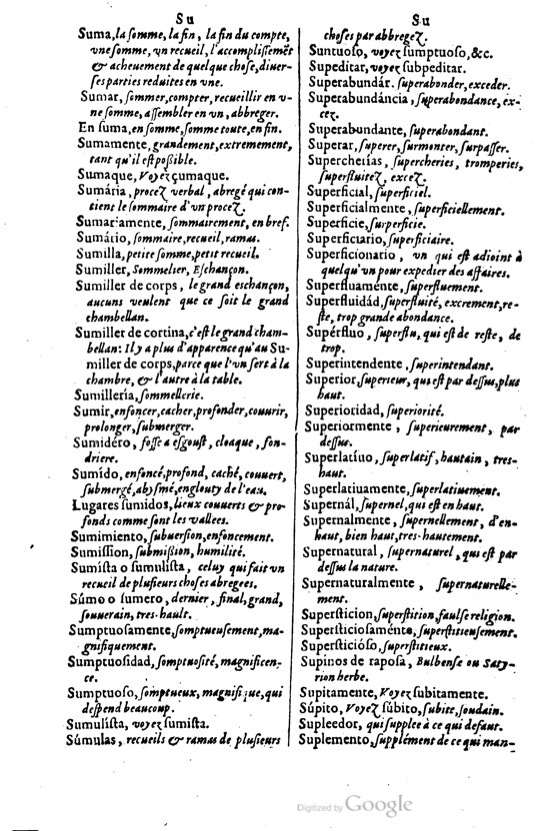 Su
Suma, la ſomme, la fin, la fin du compte,
vne ſomme, vn recueil, l'accompliſſemẽt
& acheuement de quelque choſe, diuer-
ſes parties reduites en vne.
Sumar, ſommer, compter, recueillir en v-
ne ſomme, aſſembler en vn, abbreger.
En ſuma, en ſomme, ſomme toute, en fin.
Sumamente, grandement, extremement,
tant qu'il eſt poßible.
Sumaque, Voyez çumaque.
Sumária, procez verbal, abregé qui con-
tient le ſommaire d'vn procez.
Sumariamente, ſommairement, en bref.
Sumário, ſommaire, recueil, ramas.
Sumilla, petite ſomme, petit recueil.
Sumiller, Sommelier, Eſchançon.
Sumiller de corps, le grand eſchançon,
aucuns veulent que ce ſoit le grand
chambellan.
Sumiller de cortina, c'eſt le grand cham-
bellan: Il y a plus d'apparence qu'au Su-
miller de corps, parce que l'vn ſert à la
chambre, & l'autre à la table.
Sumillería, ſommellerie.
Sumir, enfoncer, cacher, profonder, couurir,
prolonger, ſubmerger.
Sumidéro, foſſe a eſgouſt, cloaque, fon-
driere.
Sumído, enfoncé, profond, caché, couuert,
ſubmergé, abyſmé, englouty de l'eau.
Lugares ſumidos, lieux couuerts & pro-
fonds comme ſont les vallees.
Sumimiento, ſubuerſion, enfoncement.
Sumiſſion, ſubmißion, humilité.
Sumíſta o ſumuliſta, celuy qui fait vn
recueil de pluſieurs choſes abregees.
Súmo o ſumero, dernier, final, grand,
ſouuerain, tres-hault.
Sumptuoſamente, ſomptueuſement, ma-
gnifiquement.
Sumptuoſidad, ſomptuoſité, magnificen-
ce.
Sumptuoſo, ſomptueux, magnifique, qui
deſpend beaucoup.
Sumulíſta, voyez ſumiſta.
Súmulas, recueils & ramas de pluſieurs
Su
choſes par abbregez.
Suntuoſo, voyez ſumptuoſo, &c.
Supeditar, voyez ſubpeditar.
Superabundár, ſuperabonder, exceder.
Superabundáncia, ſuperabondance, ex-
cez.
Superabundante, ſuperabondant.
Superar, ſuperer, ſurmonter, ſurpaſſer.
Supercherías, ſupercheries, tromperies,
ſuperfluitez, excez.
Superficial, ſuperficiel.
Superficialmente, ſuperficiellement.
Superficie, ſurperficie.
Superficiario, ſuperficiaire.
Superficionario, vn qui eſt adioint à
quelqu'vn pour expedier des affaires.
Superfluaménte, ſuperfluement.
Superfluidád, ſuperfluité, excrement, re-
ſte, trop grande abondance.
Supérfluo, ſuperflu, qui eſt de reſte, de
trop.
Superintendente, ſuperintendant.
Superior, ſuperieur, qui eſt par deſſus, plus
haut.
Superioridad, ſuperiorité.
Superiormente, ſuperieurement, par
deſſus.
Superlatíuo, ſuperlatif, hautain, tres-
haut.
Superlatiuamente, ſuperlatiuement.
Supernál, ſupernel, qui eſt en haut.
Supernalmente, ſupernellement, d'en-
haut, bien haut, tres-hautement.
Supernatural, ſupernaturel, qui eſt par
deſſus la nature.
Supernaturalmente, ſupernaturelle-
ment.
Superſticion, ſuperſtition, faulſe religion.
Superſticioſaménte, ſuperſtitieuſement.
Superſticióſo, ſuperſtitieux.
Supinos de rapoſa, Bulbenſe ou Saty-
rion herbe.
Supitamente, Voyez ſubitamente.
Súpito, Voyez ſúbito, ſubite, ſoudain.
Supleedor, qui ſupplee à ce qui defaut.
Suplemento, ſupplément de ce qui man-
Digitized by Google